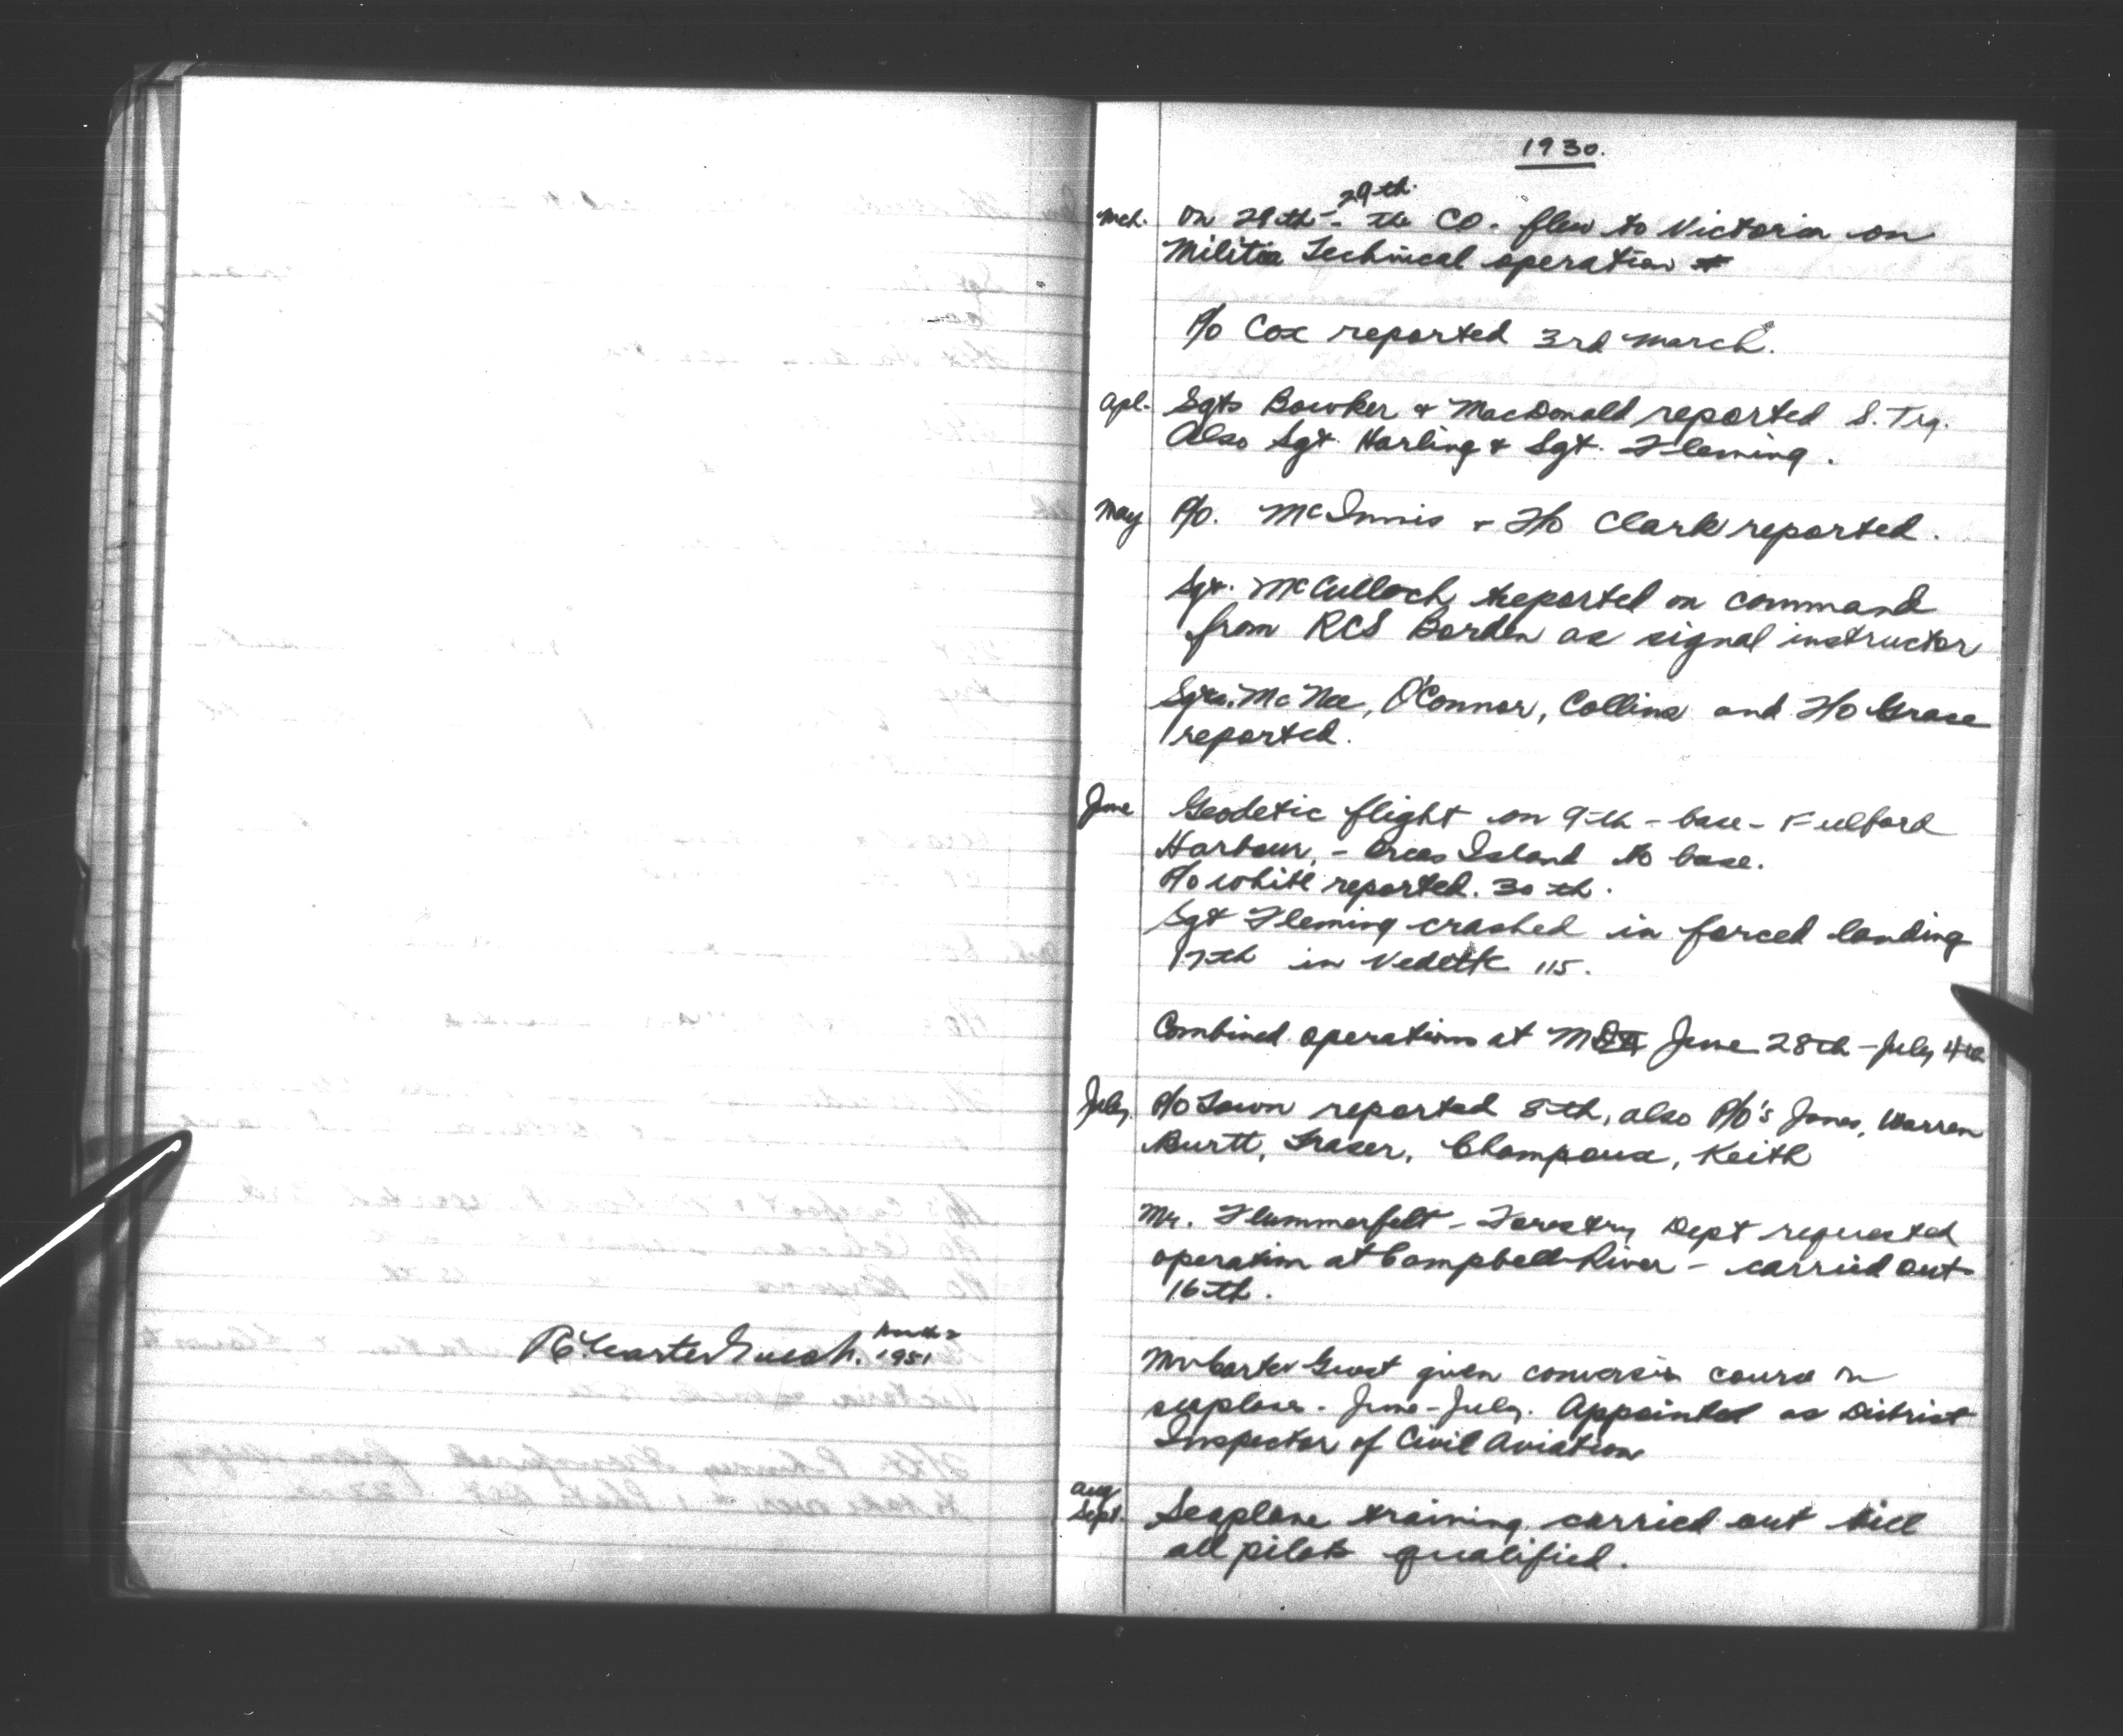 R Carter Guest. March 2
1951
1930.
29th.
Mch. On 28th - the CO. flew to Victoria on
Militia Technical operation
P/O Cox reported 3rd March.
Apl. Sgts Bowker & MacDonald reported S. Trg.
Also Sgt. Harling & Sgt. Fleming.
May P/O. McInnis & F/O Clark reported.
Sgt. McCulloch reported on command
from RCS Borden as signal instructor
Sgts. McNee, O'Connor, Collins and F/O Grace
reported.
June Geodetic flight on 9th - base - Fulford
Harbour, - Orcas Island to base.
P/O White reported. 30th.
Sgt Fleming crashed in forced landing
17th in Vedette 115.
Combined operations at June 28th - July 4th
July P/O Town reported 8th, also P/O's Jones, Warren
Burtt, Fraser, Champoux, Keith
Mr. Flummerfelt - Forestry Dept requested
operation at Campbell River - carried out
16th.
Mr Carter Guest given conversion course on
seaplanes. June - July. Appointed as District
Inspector of Civil Aviation
Aug
Sept. Seaplane training carried out till
all pilots qualified.